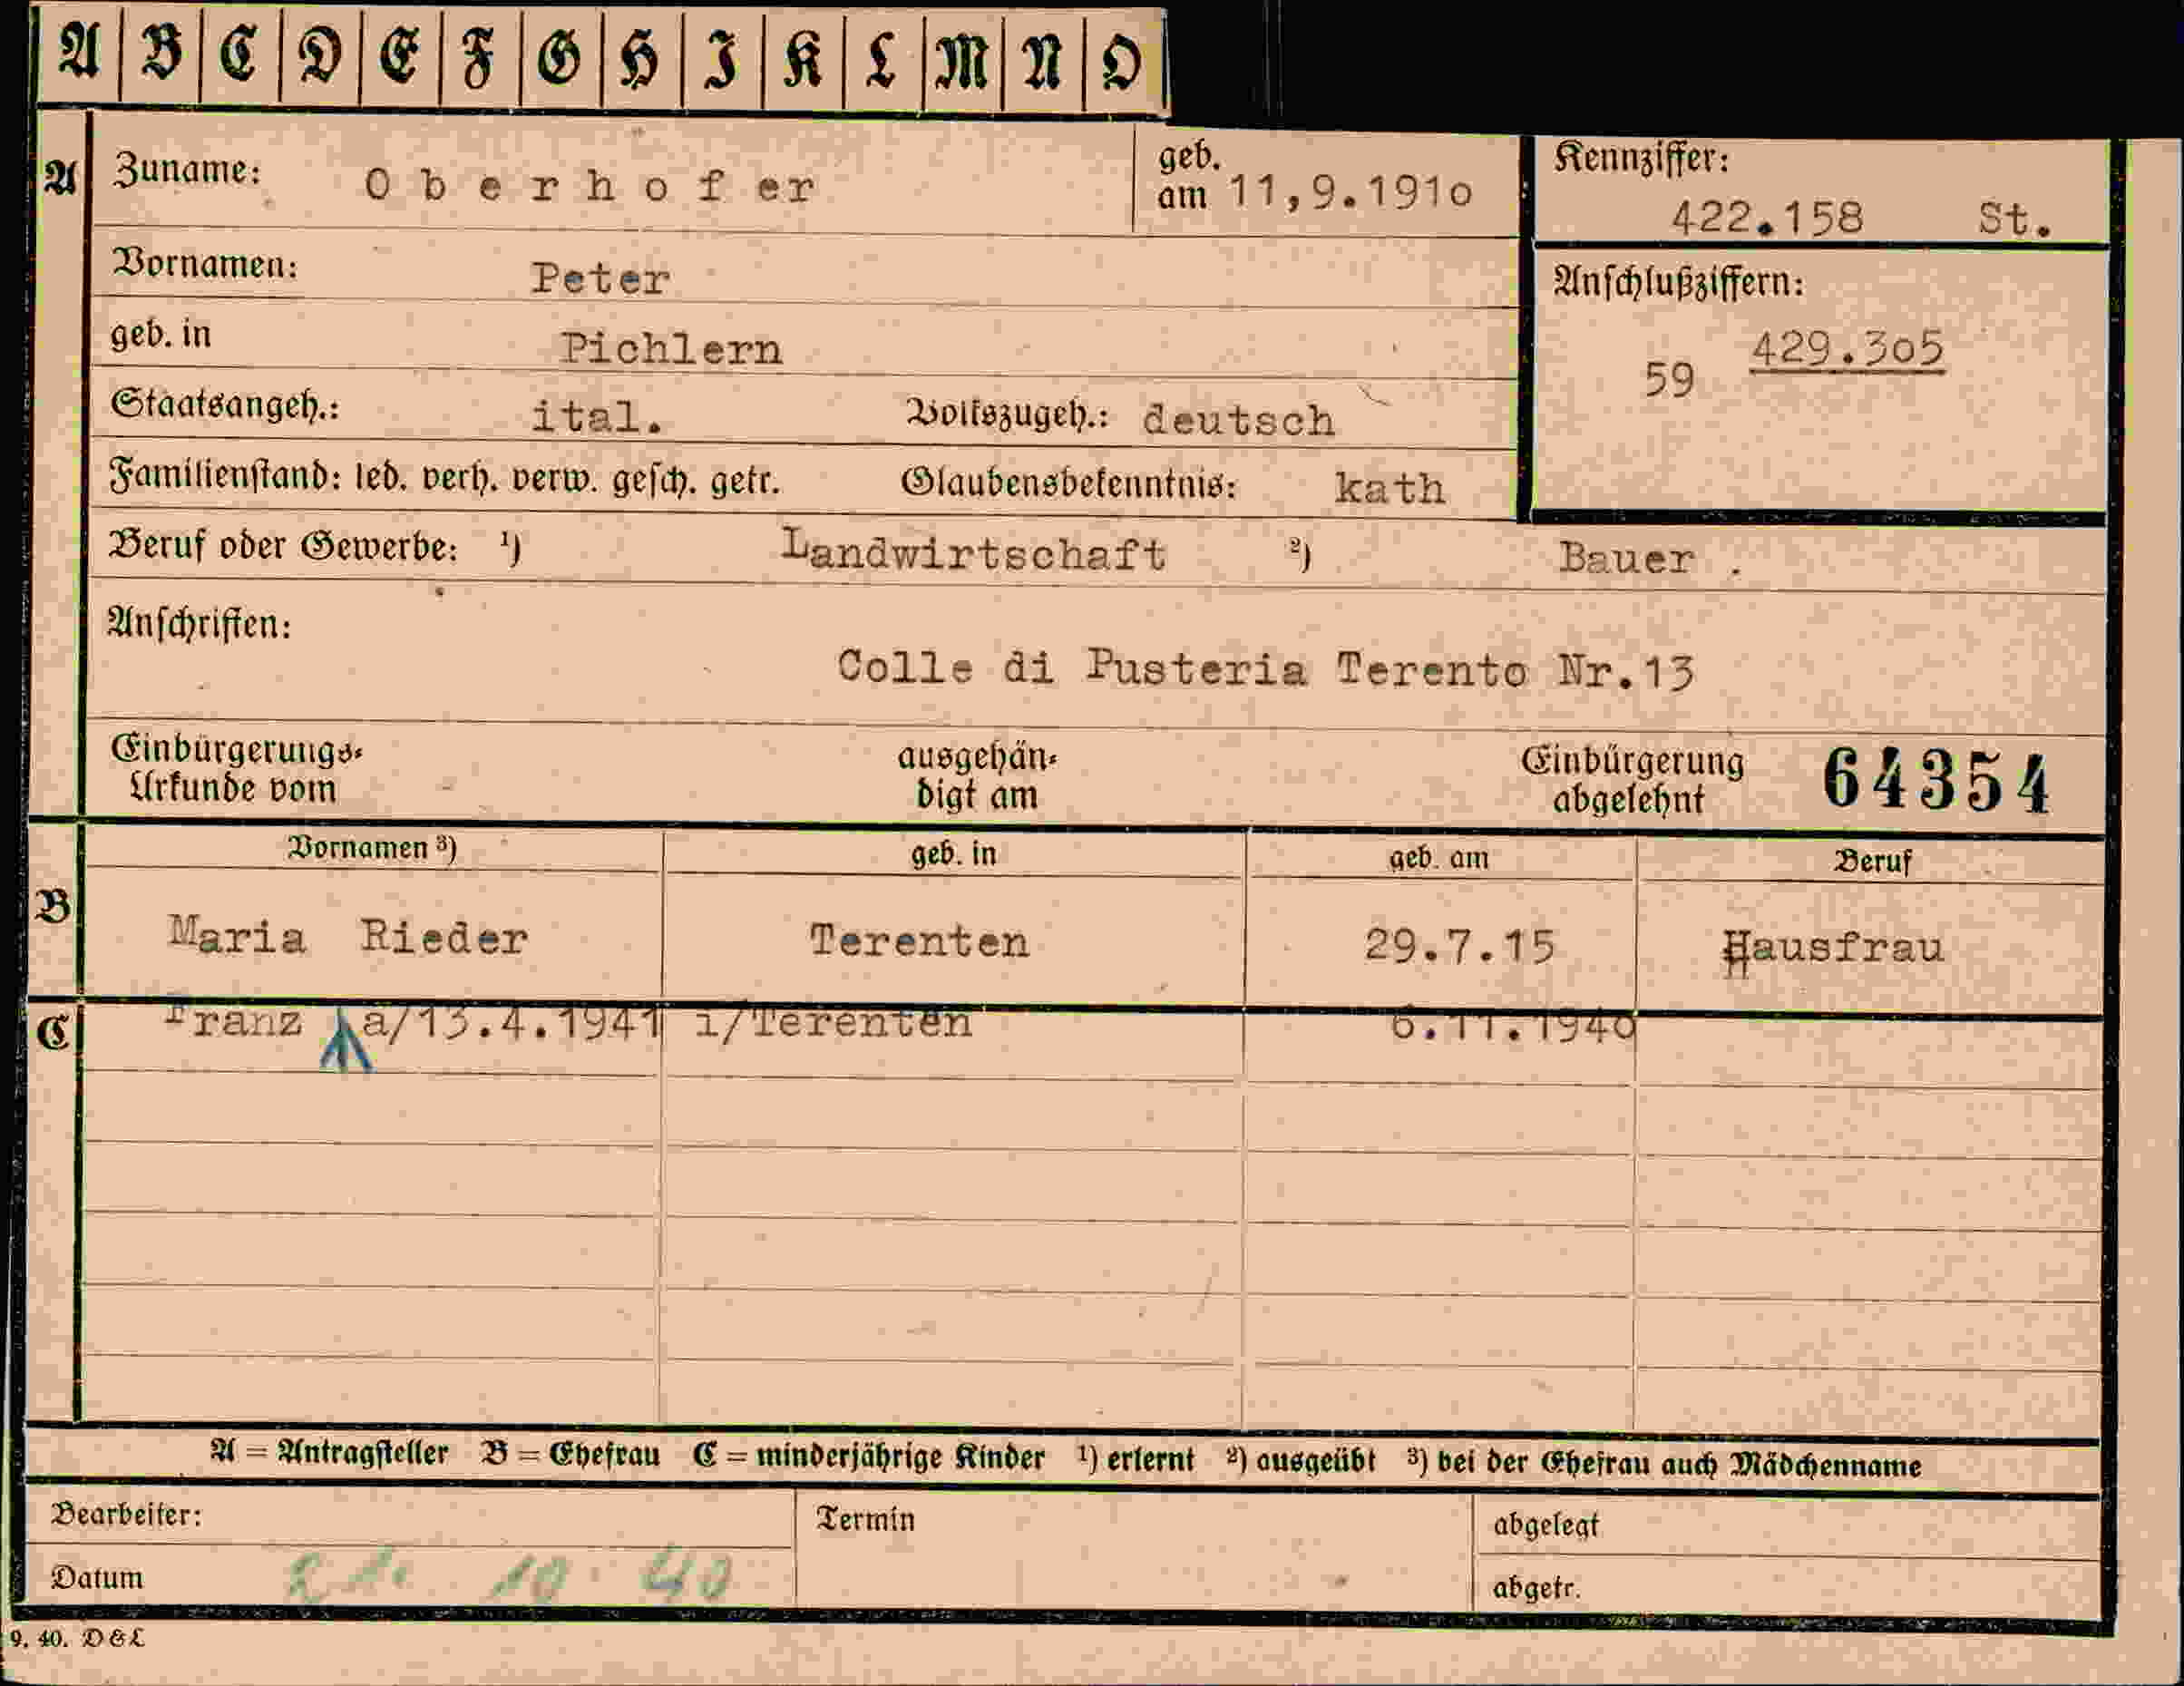 A B C D E F G H I K L M N O
A Zuname: O b e r h o f er geb. am 11,9.191o Kennziffer: 422.158 St.
Vornamen: Peter Anschlußziffern:
geb. in Pichlern 59 429.3o5
Staatsangeh.: ital. Volkszugeh.: deutsch
Familienstand: led. verh. verw. gesch. getr. Glaubensbekenntnis: kath
Beruf oder Gewerbe: ¹) Landwirtschaft ²) Bauer .
Anschriften:
Colle di Pusteria Terento Nr.13
Einbürgerungs- ausgehän- Einbürgerung 64354
Urkunde vom digt am abgelehnt
Vornamen ³) geb. in geb. am Beruf
B Maria Rieder Terenten 29.7.15 Hausfrau
C Franz a/13.4.1941 i/Terenten 6.11.1940
A = Antragsteller B = Ehefrau C = minderjährige Kinder ¹) erlernt ²) ausgeübt ³) bei der Ehefrau auch Mädchenname
Bearbeiter: Termin abgelegt
Datum 21. 10. 40 abgetr.
9. 40. D&L